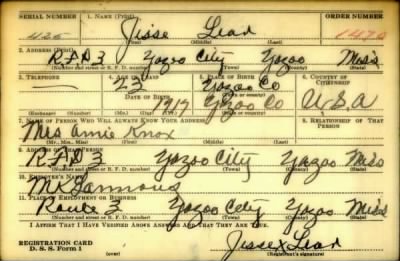 SERIAL NUMBER 1. NAME (Print) ORDER NUMBER
425 Jisse Lear 1470
(First) (Middle) (Last)
2. ADDRESS (Print)
RFD 3 Yazoo City Yazoo Miss
(Number and street or R. F. D. number) (Town) (County) (State)
3. TELEPHONE 4. AGE IN YEARS 5. PLACE OF BIRTH 6. COUNTRY OF CITIZENSHIP
— 23 Yazoo Co
DATE OF BIRTH
1917 Yazoo Co U.S.A
7. NAME OF PERSON WHO WILL ALWAYS KNOW YOUR ADDRESS 8. RELATIONSHIP OF THAT PERSON
Mrs Annie Knox
(Mr., Mrs., Miss) (First) (Middle) (Last)
9. ADDRESS OF THAT PERSON
RFD 3 Yazoo City Yazoo Miss
(Number and street or R. F. D. number) (Town) (County) (State)
10. EMPLOYER'S NAME
11. PLACE OF EMPLOYMENT OR BUSINESS
Route 3 Yazoo City Yazoo Miss
(Number and street or R. F. D. number) (Town) (County) (State)
I AFFIRM THAT I HAVE VERIFIED ABOVE ANSWERS AND THAT THEY ARE TRUE.
REGISTRATION CARD
D. S. S. Form 1 (over) Jisse X Lear
(Registrant's signature)